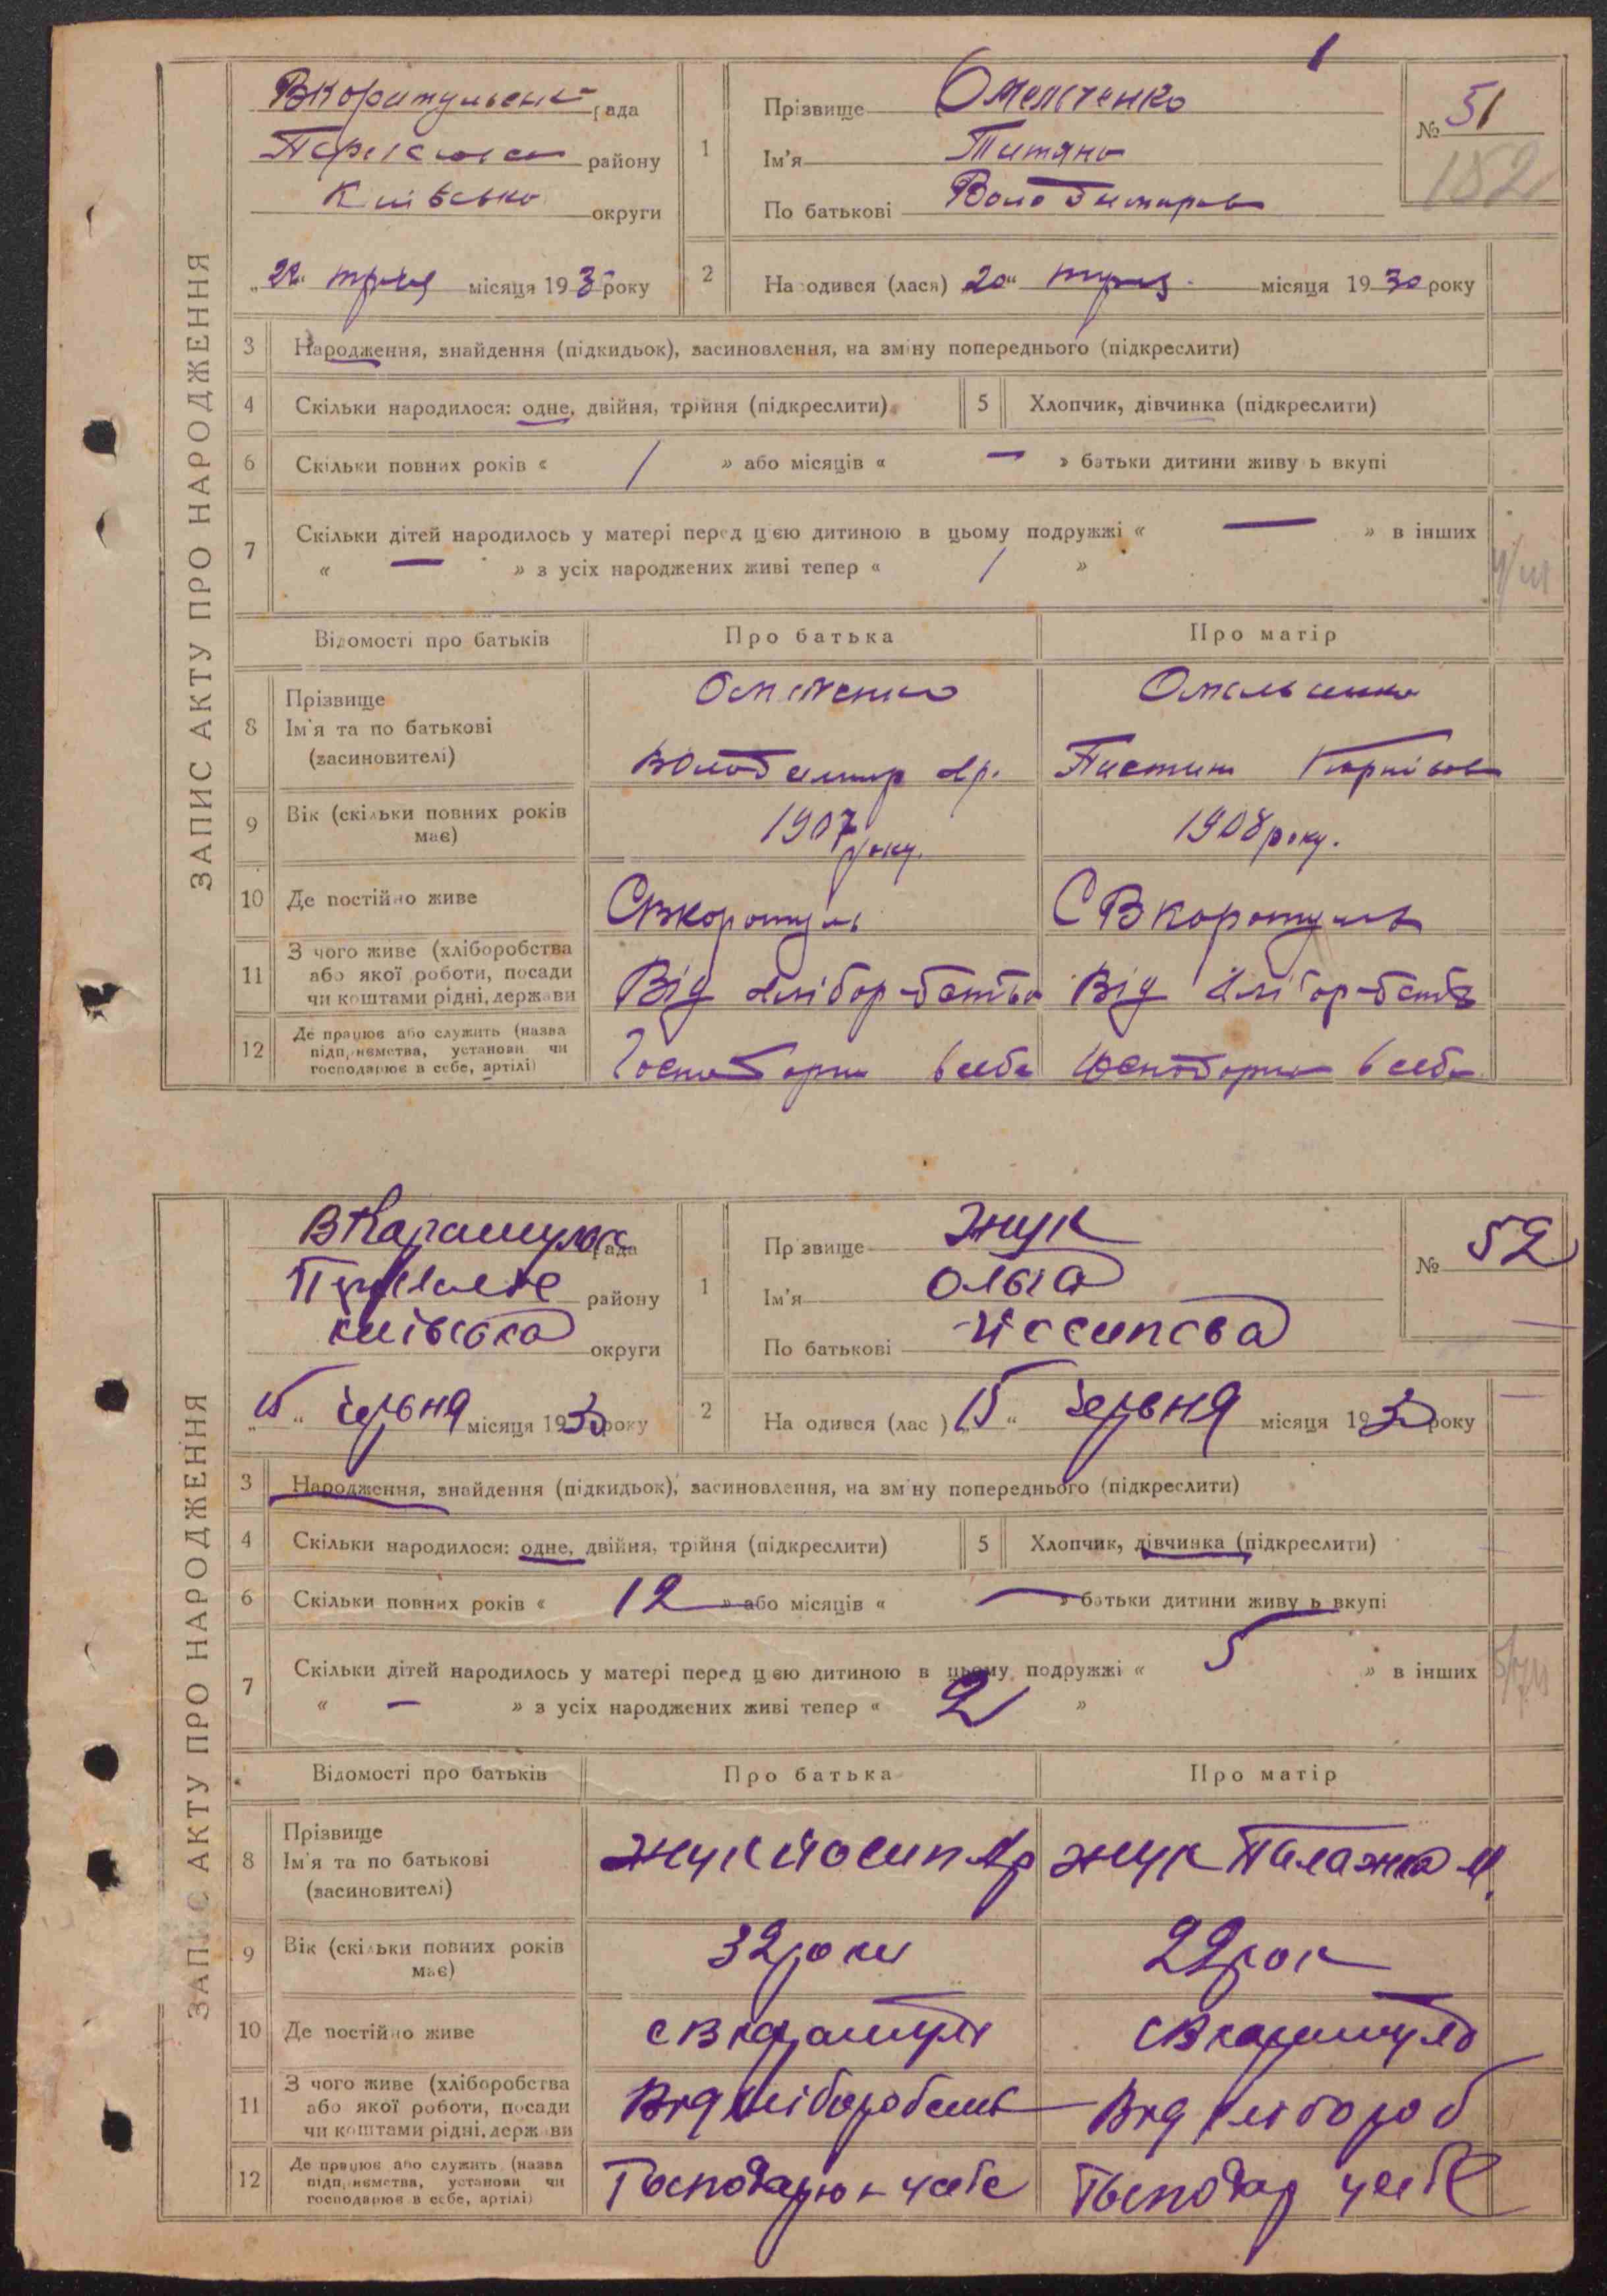 ЗАПИС АКТУ ПРО НАРОДЖЕННЯ
рада
району
Київсько округи
„22“ місяця 1930 року
1
Прізвище Омельченко
Ім'я Титяна
По батькові Володимиров
№ 51
182
2 На одився (лася) „20“ місяця 1930 року
3 Народження, знайдення (підкидьок), засиновлення, на зміну попереднього (підкреслити)
4 Скільки народилося: одне, двійня, трійня (підкреслити)
5 Хлопчик, дівчинка (підкреслити)
6 Скільки повних років « 1 » або місяців « — » батьки дитини живу ь вкупі
7 Скільки дітей народилось у матері перед цією дитиною в цьому подружжі « — » в інших
« — » з усіх народжених живі тепер « 1 »
Відомості про батьків Про батька Про матір
8 Прізвище
Ім'я та по батькові
(засиновителі)
Омельченко
Володимир Ар.
9 Вік (скільки повних років має)
1907 року.
1908 року.
10 Де постійно живе
С Вкоротуль
С Вкоротуль
11 З чого живе (хліборобства
або якої роботи, посади
чи коштами рідні, держави
Від
Від
12 Де працює або служить (назва
підприємства, установи чи
господарює в себе, артілі)
в себе
в себе
ЗАПИС АКТУ ПРО НАРОДЖЕННЯ
рада
району
київська округи
„15“ червня місяця 1930 року
1
Пр звище Жук
Ім'я Ольга
По батькові Йосипова
№ 52
2 На одився (лас ) „15“ червня місяця 1930 року
3 Народження, знайдення (підкидьок), засиновлення, на зм ну попереднього (підкреслити)
4 Скільки народилося: одне, двійня, трійня (підкреслити)
5 Хлопчик, дівчинка (підкреслити)
6 Скільки повних років « 12 » або місяців « — » батьки дитини живу ь вкупі
7 Скільки дітей народилось у матері перед цією дитиною в цьому подружжі « 5 » в інших
« — » з усіх народжених живі тепер « 2 »
Відомості про батьків Про батька Про матір
8 Прізвище
Ім'я та по батькові
(засиновителі)
Жук Йосип Ар
Жук Палажка М.
9 Вік (скільки повних років має)
32 роки
22 рок
10 Де постійно живе
с В каратуль
с В каратуль
11 З чого живе (хліборобства
або якої роботи, посади
чи коштами рідні, держави
Від хліборобств
Від хлібороб
12 Де працює або служить (назва
підприємства, установи чи
господарює в себе, артілі)
Господарює у себе
Господар у себе